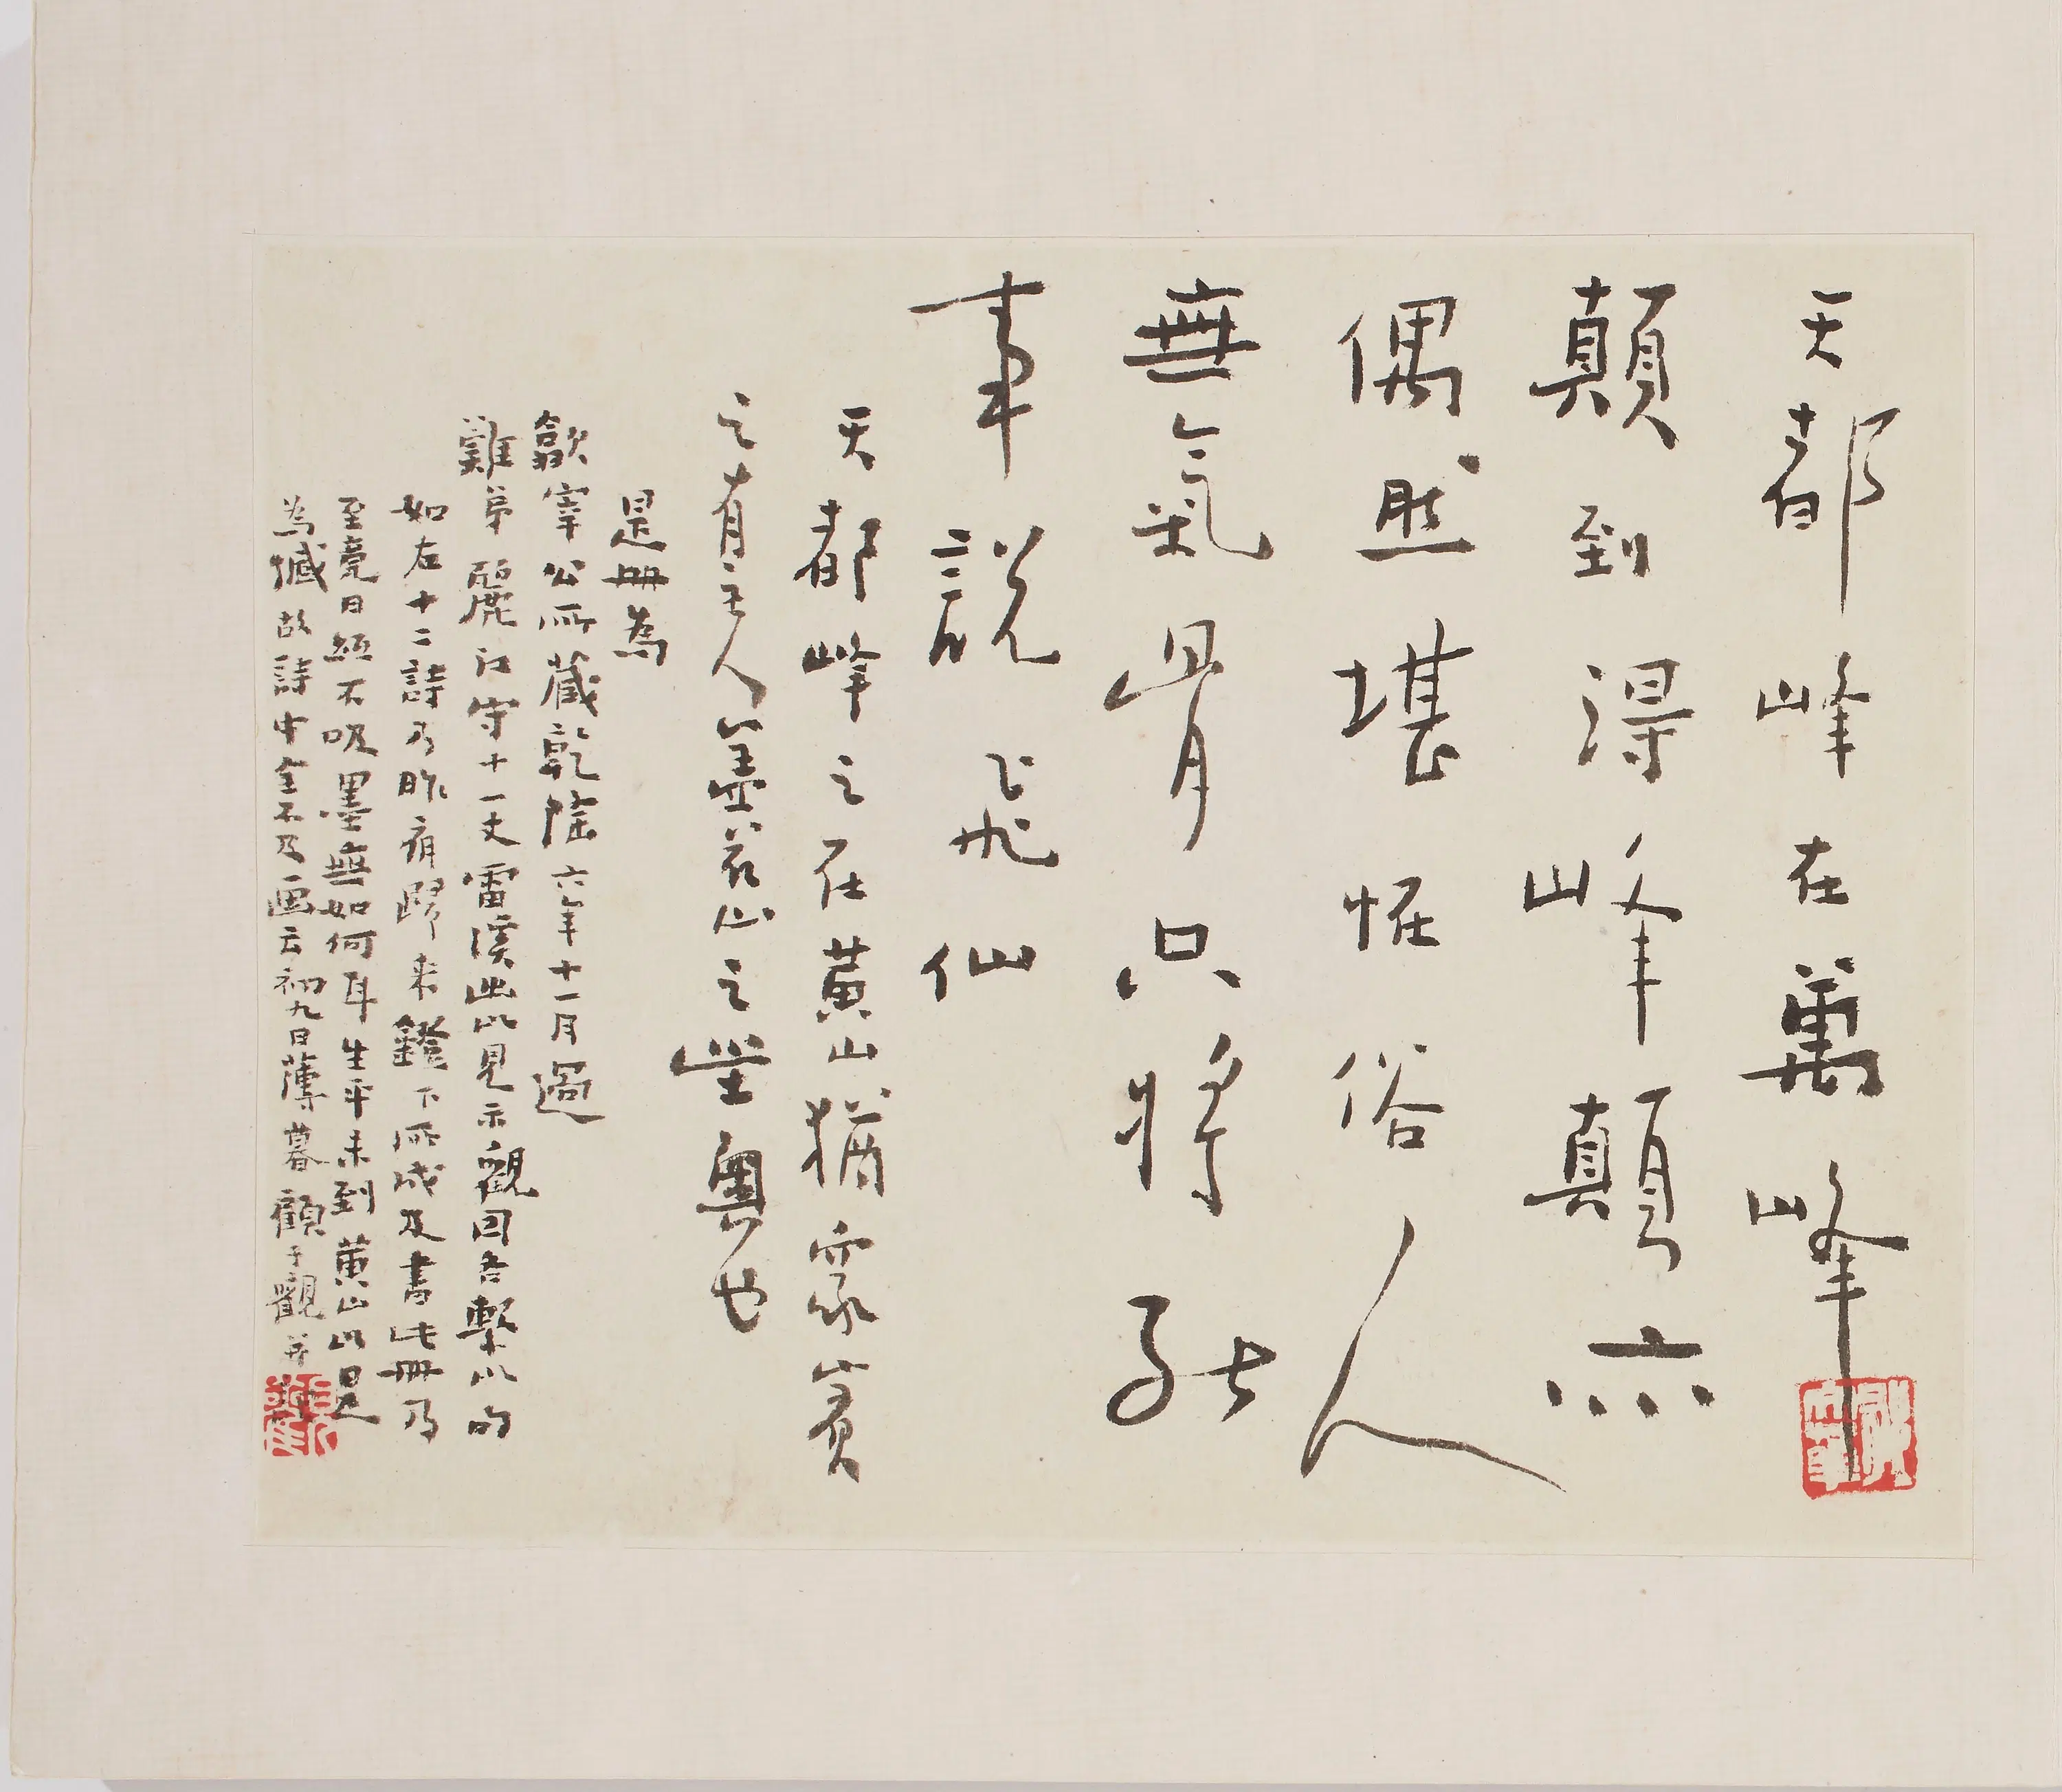 天都峰在萬峰
顛到得峰顛亦
偶然堪怪俗人
無氣骨只將能
事說飛仙
天都峰之在黃山猶眾賓
之有主人蓋衣心之堂奧也
是冊為
歙宰公所藏乾隆六年十一月過
難弟麗江守十一丈雷溪出以見示觀因各繫以詩
如右十二詩乃昨宵醉來鐙下所成及書此冊乃
至亮日紙不吸墨無如何耳生平未到黃山以是
為憾故詩中全不及画云初九日薄暮顧于觀并